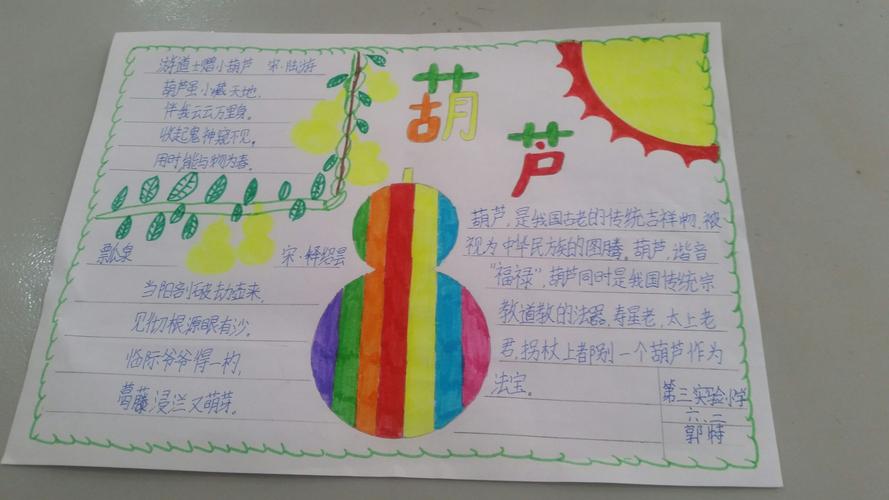 葫芦
游道士赠小葫芦 宋·陆游
葫芦虽小藏天地,
伴我云云万里身。
收起鬼神窥不见,
用时能与物为春。
瓢泉 宋·释绍昙
当阳剖破劫壶来,
见切根源眼有沙。
临际爷爷得一杓,
葛藤浸烂又萌芽。
葫芦,是我国古老的传统吉祥物,被
视为中华民族的图腾。葫芦,谐音
"福禄",葫芦同时是我国传统宗
教道教的法器,寿星老,太上老
君,拐杖上都别一个葫芦作为
法宝。
第三实验小学
六、二
郭特